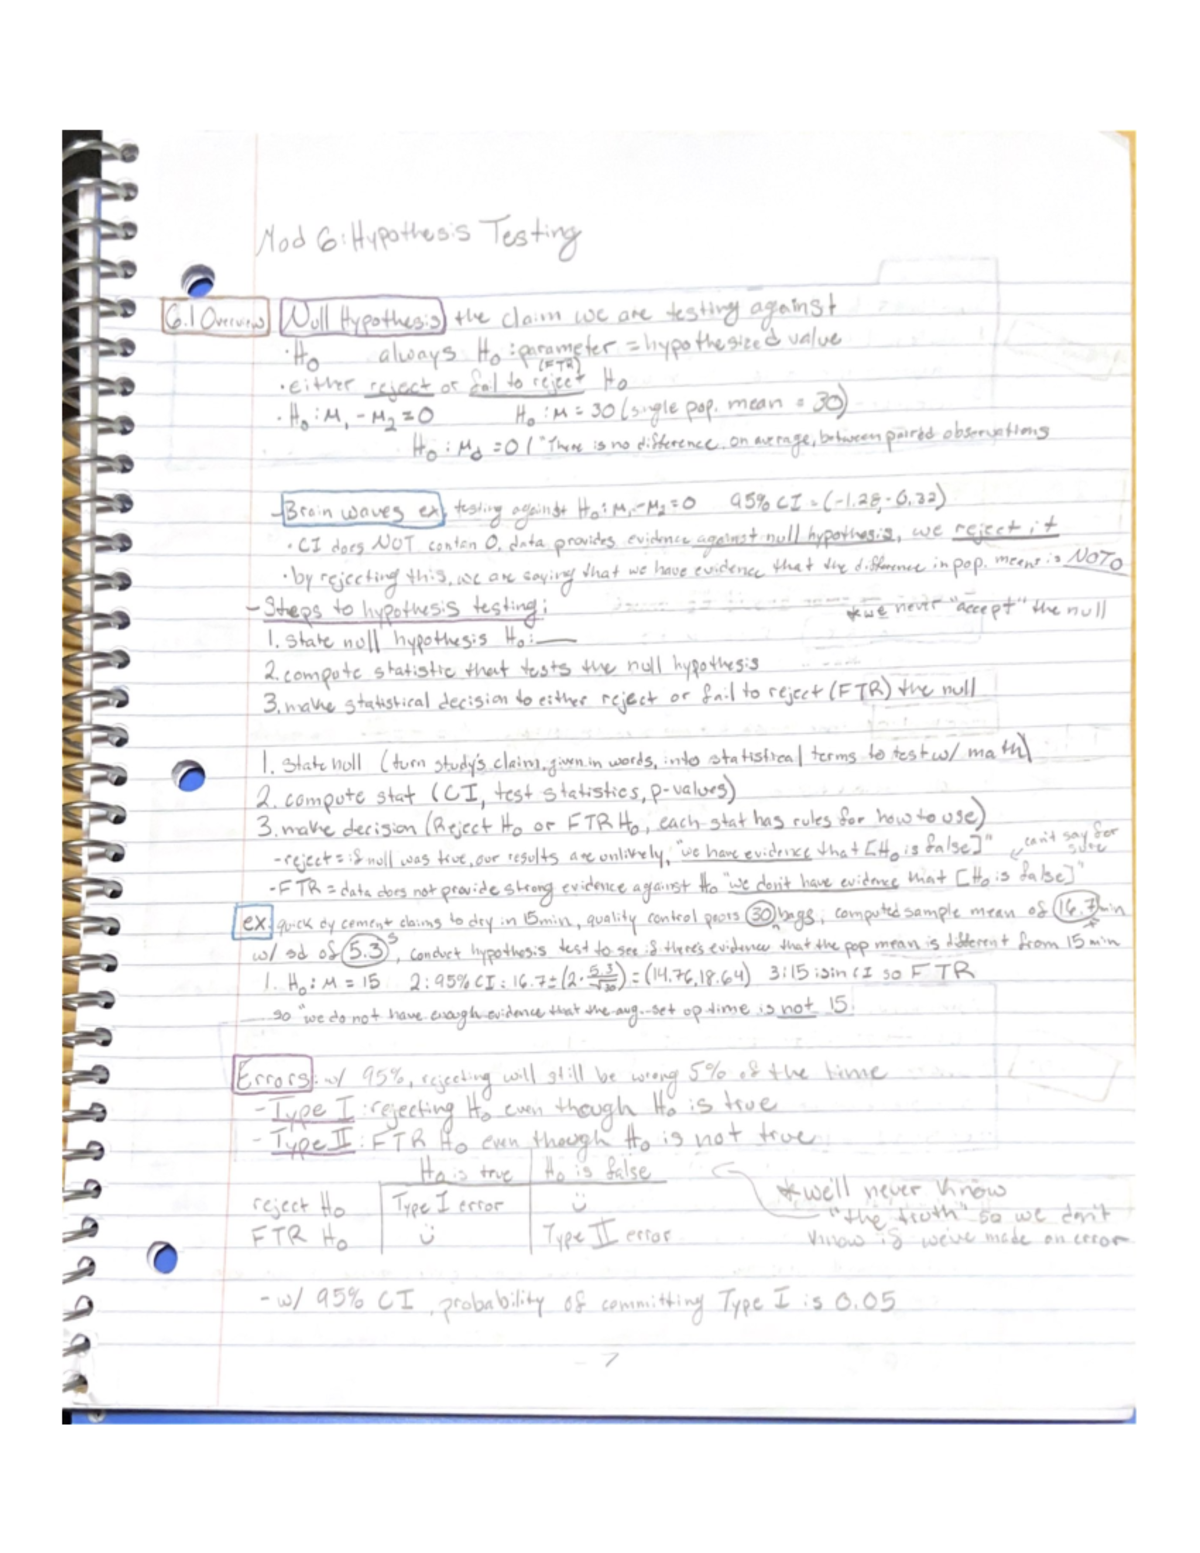 Mod 6: Hypothesis Testing
6.1 Overview Null Hypothesis the claim we are testing against
· H₀ always H₀: parameter = hypothesized value
(FTR)
· either reject or fail to reject H₀
· H₀: M₁ - M₂ = 0 H₀: M = 30 (single pop. mean = 30)
H₀: Md = 0 ("There is no difference, on average, between paired observations
- Brain waves ex, testing against H₀: M₁ - M₂ = 0 95% CI = (-1.28, -0.32)
· CI does NOT contan 0, data provides evidence against null hypothesis, we reject it
· by rejecting this, we are saying that we have evidence that the difference in pop. means is NOT 0
- Steps to hypothesis testing: *we never "accept" the null
1. state null hypothesis H₀: ___
2. compute statistic that tests the null hypothesis
3. make statistical decision to either reject or fail to reject (FTR) the null
1. state null (turn study's claim, given in words, into statistical terms to test w/ math)
2. compute stat (CI, test statistics, p-values)
3. make decision (Reject H₀ or FTR H₀, each stat has rules for how to use)
- reject = if null was true, our results are unlikely, "we have evidence that [H₀ is false]" can't say for sure
- FTR = data does not provide strong evidence against H₀ "we don't have evidence that [H₀ is false]"
ex: quick dy cement claims to dry in 15min, quality control pours 30 bags, computed sample mean of 16.7min
n x̄
w/ sd of 5.3 s, conduct hypothesis test to see if there's evidence that the pop mean is different from 15 min
1. H₀: M = 15 2: 95% CI: 16.7 ± (2 · 5.3/√30) = (14.76, 18.64) 3: 15 is in CI so FTR
so "we do not have enough evidence that the avg. set up time is not 15.
Errors: w/ 95%, rejecting will still be wrong 5% of the time
- Type I: rejecting H₀ even though H₀ is true
- Type II: FTR H₀ even though H₀ is not true
H₀ is true H₀ is false
reject H₀ Type I error ü
FTR H₀ ü Type II error
*we'll never know
"the truth" so we don't
know if we've made an error
- w/ 95% CI, probability of committing Type I is 0.05
7